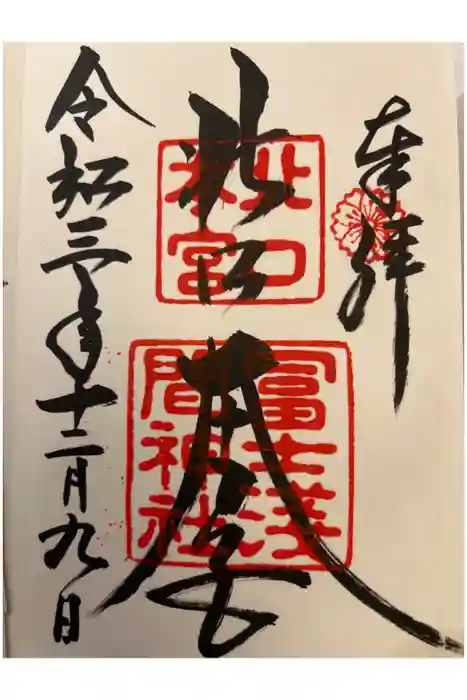 奉拝
北口本宮
北口
本宮
冨士浅
間神社
令和三年十二月九日